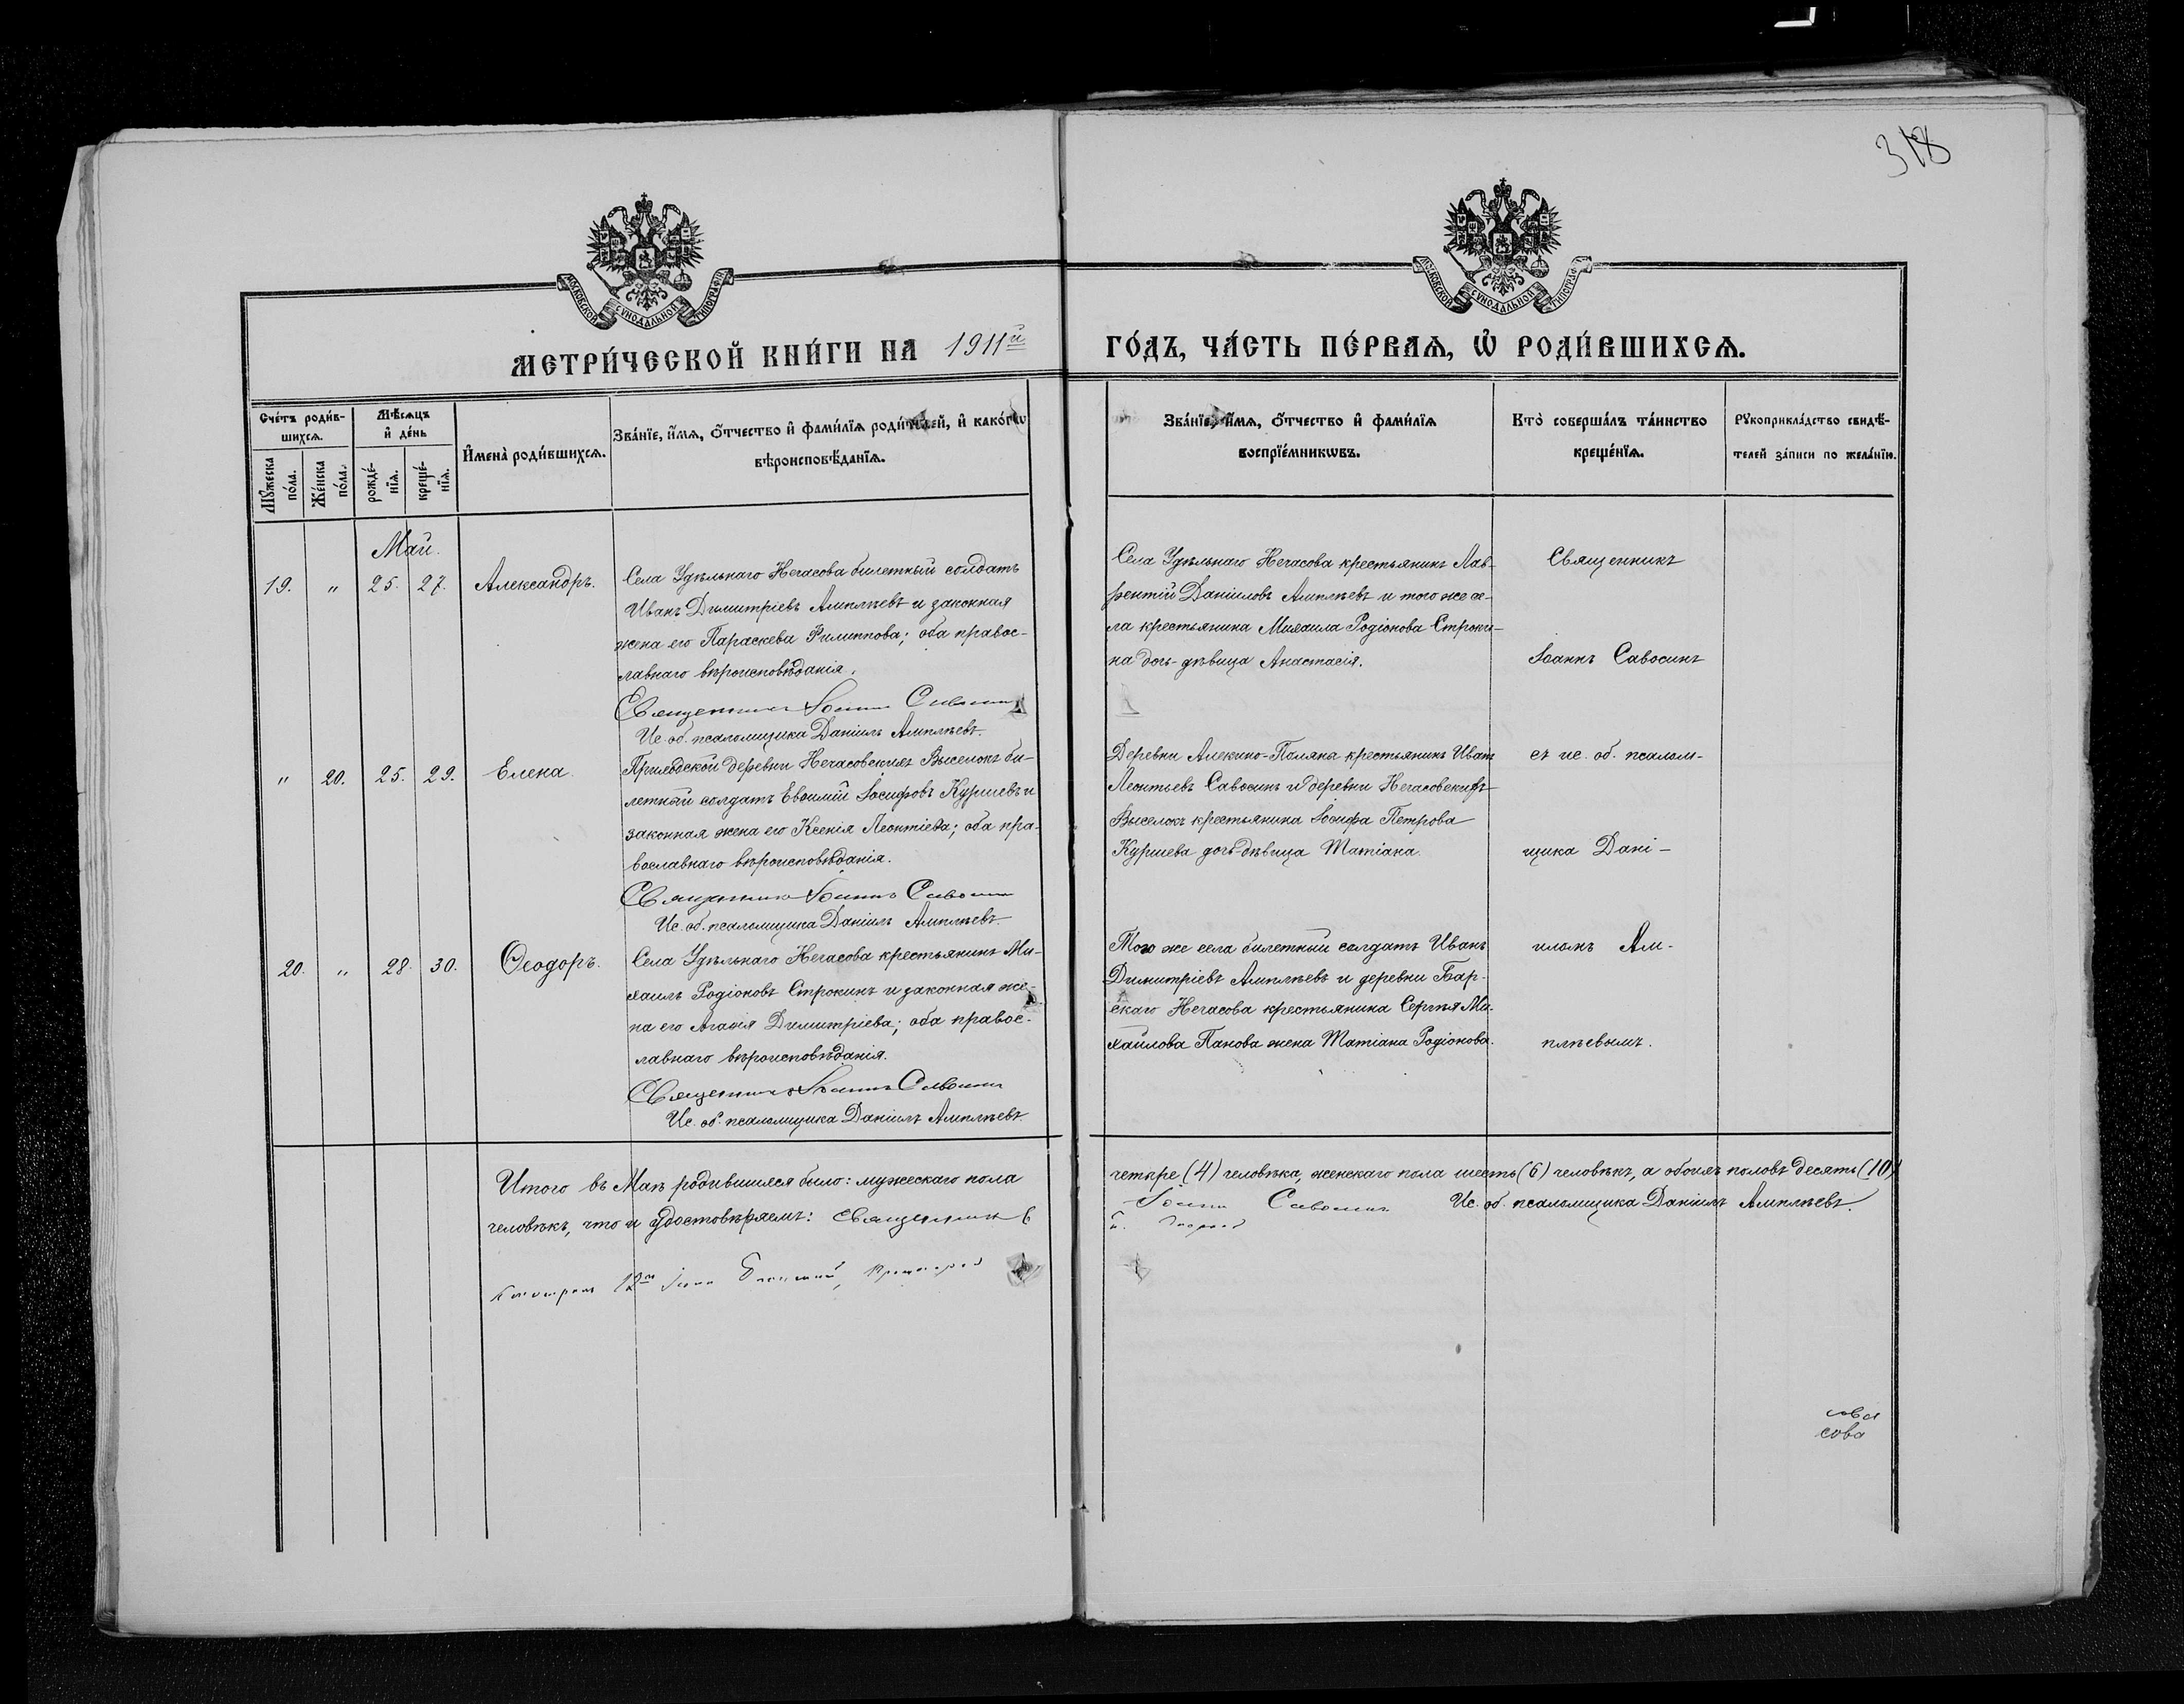 318
МОСКОВСКОЙ СѴНОДАЛЬНОЙ ТИПОГРАФІИ
МОСКОВСКОЙ СѴНОДАЛЬНОЙ ТИПОГРАФІИ
МЕТРИ́ЧЕСКОЙ КНИ́ГИ НА 1911й ГО́ДЪ, ЧА́СТЬ ПЕ́РВАЯ, Ѡ РОДИ́ВШИХСЯ.
Сче́тъ роди́в-
шихся.
Мꙋ́жеска
по́ла.
Же́нска
по́ла.
Мѣ́сяцъ
и҆ де́нь
рожде́-
нїя.
креще́-
нїя.
И҆мена̀ роди́вшихся.
Зва́нїе, и҆́мя, ѻ҆́тчество и҆ фами́лїя роди́телей, и҆ како́гѡ
вѣроисповѣ́данїя.
Зва́нїе, и҆́мя, ѻ҆́тчество и҆ фами́лїя
воспрїе́мникѡвъ.
Кто̀ соверша́лъ та́инство
креще́нїя.
Рꙋкоприкла́дство свидѣ́-
телей за́писи по жела́нїю.
Май.
19. " 25. 27. Александръ.
Села Удѣльнаго Нечасова билетный солдатъ
Иванъ Димитріевъ Амплѣевъ и законная
жена его Параскева Филиппова; оба правос-
лавнаго вѣроисповѣданія.
Священникъ Іоаннъ Савосинъ
Ис. об. псаломщика Даніилъ Амплѣевъ.
Села Удѣльнаго Нечасова крестьянинъ Лав-
рентій Даніиловъ Амплѣевъ и того же се-
ла крестьянина Михаила Родіонова Строки-
на дочь-дѣвица Анастасія.
" 20. 25. 29. Елена
деревни Нечасовскихъ Выселокъ би-
летный солдатъ Евѳимій Іосифовъ Куршевъ и
законная жена его Ксенія Леонтіева; оба пра-
вославнаго вѣроисповѣданія.
Священникъ Іоаннъ Савосинъ
Ис. об. псаломщика Даніилъ Амплѣевъ.
Деревни Алекино-Поляна крестьянинъ Иванъ
Леонтьевъ Савосинъ и деревни Нечасовскихъ
Выселокъ крестьянина Іосифа Петрова
Куршева дочь-дѣвица Татіана.
20. " 28. 30. Ѳеодоръ.
Села Удѣльнаго Нечасова крестьянинъ Ми-
хаилъ Родіоновъ Строкинъ и законная же-
на его Агаѳія Димитріева; оба правос-
лавнаго вѣроисповѣданія.
Священникъ Іоаннъ Савосинъ
Ис. об. псаломщика Даніилъ Амплѣевъ.
Того же села билетный солдатъ Иванъ
Димитріевъ Амплѣевъ и деревни Бар-
скаго Нечасова крестьянина Сергѣя Ми-
хайлова Панова жена Татіана Родіонова.
Священникъ
Іоаннъ Савосинъ
съ ис. об. псалом-
щика Дані-
иломъ Ам-
плѣевымъ.
Итого въ Маѣ родившихся было: мужескаго пола четыре (4) человѣка, женскаго пола шесть (6) человѣкъ, а обоихъ половъ десять (10)
человѣкъ, что и удостовѣряемъ: Священникъ Іоаннъ Савосинъ Ис. об. псаломщика Даніилъ Амплѣевъ.
сова
сова